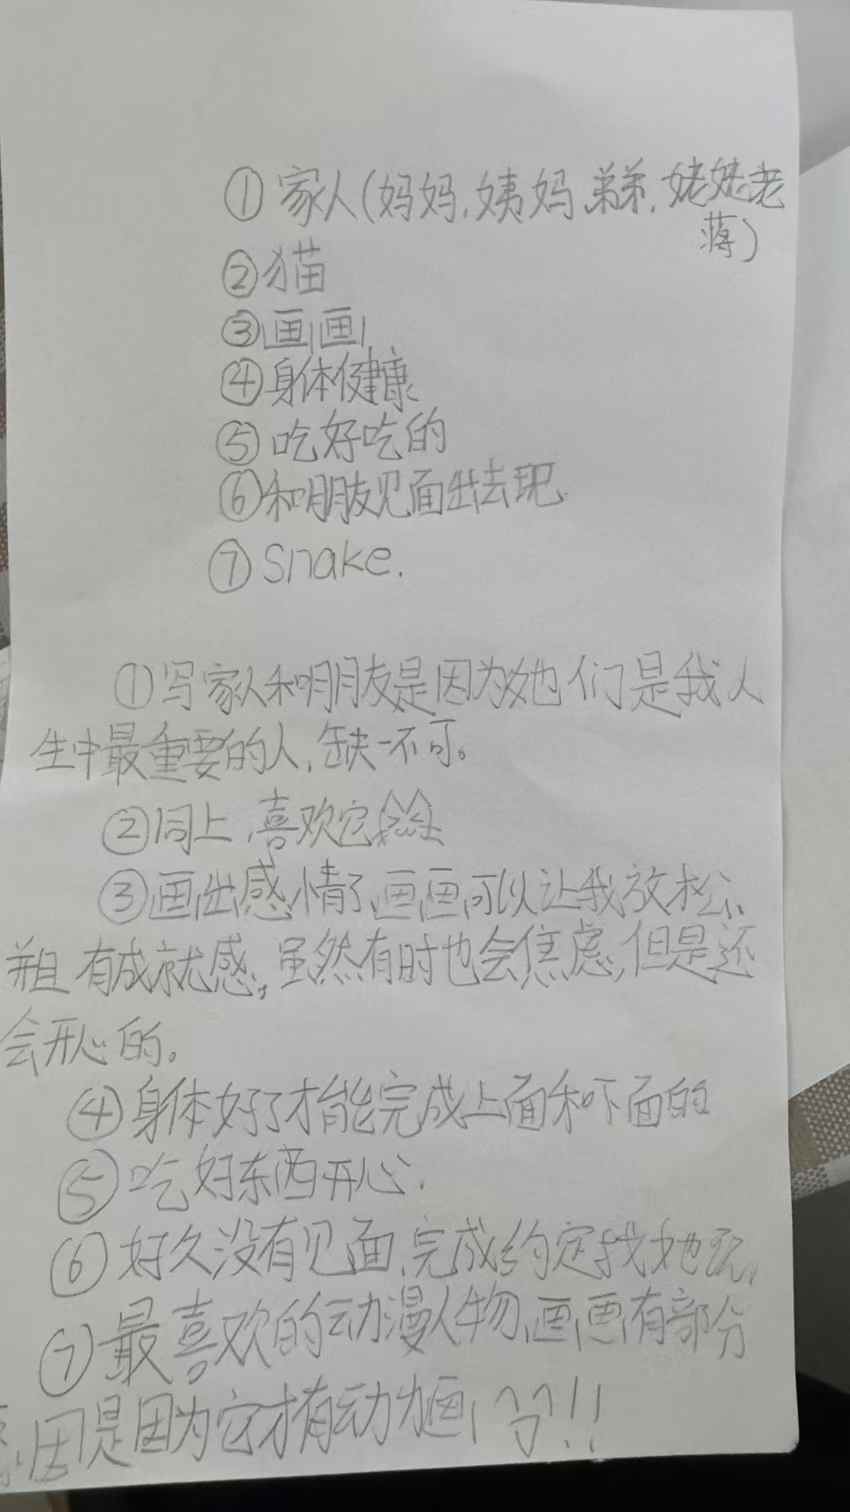 ①家人(妈妈,姨妈,弟弟,姥姥老
蒋)
②猫
③画画
④身体健康
⑤吃好吃的
⑥和朋友见面出去玩
⑦Snake.
①写家人和朋友是因为她们是我人
生中最重要的人,缺一不可。
②同上,喜欢它
③画出感情了,画画可以让我放松,
并且有成就感,虽然有时也会焦虑,但是还
会开心的。
④身体好了才能完成上面和下面的
⑤吃好东西开心.
⑥好久没有见面,完成约定找她玩,
⑦最喜欢的动漫人物,画画有部分
原因是因为它才有动力画,^▽^!!